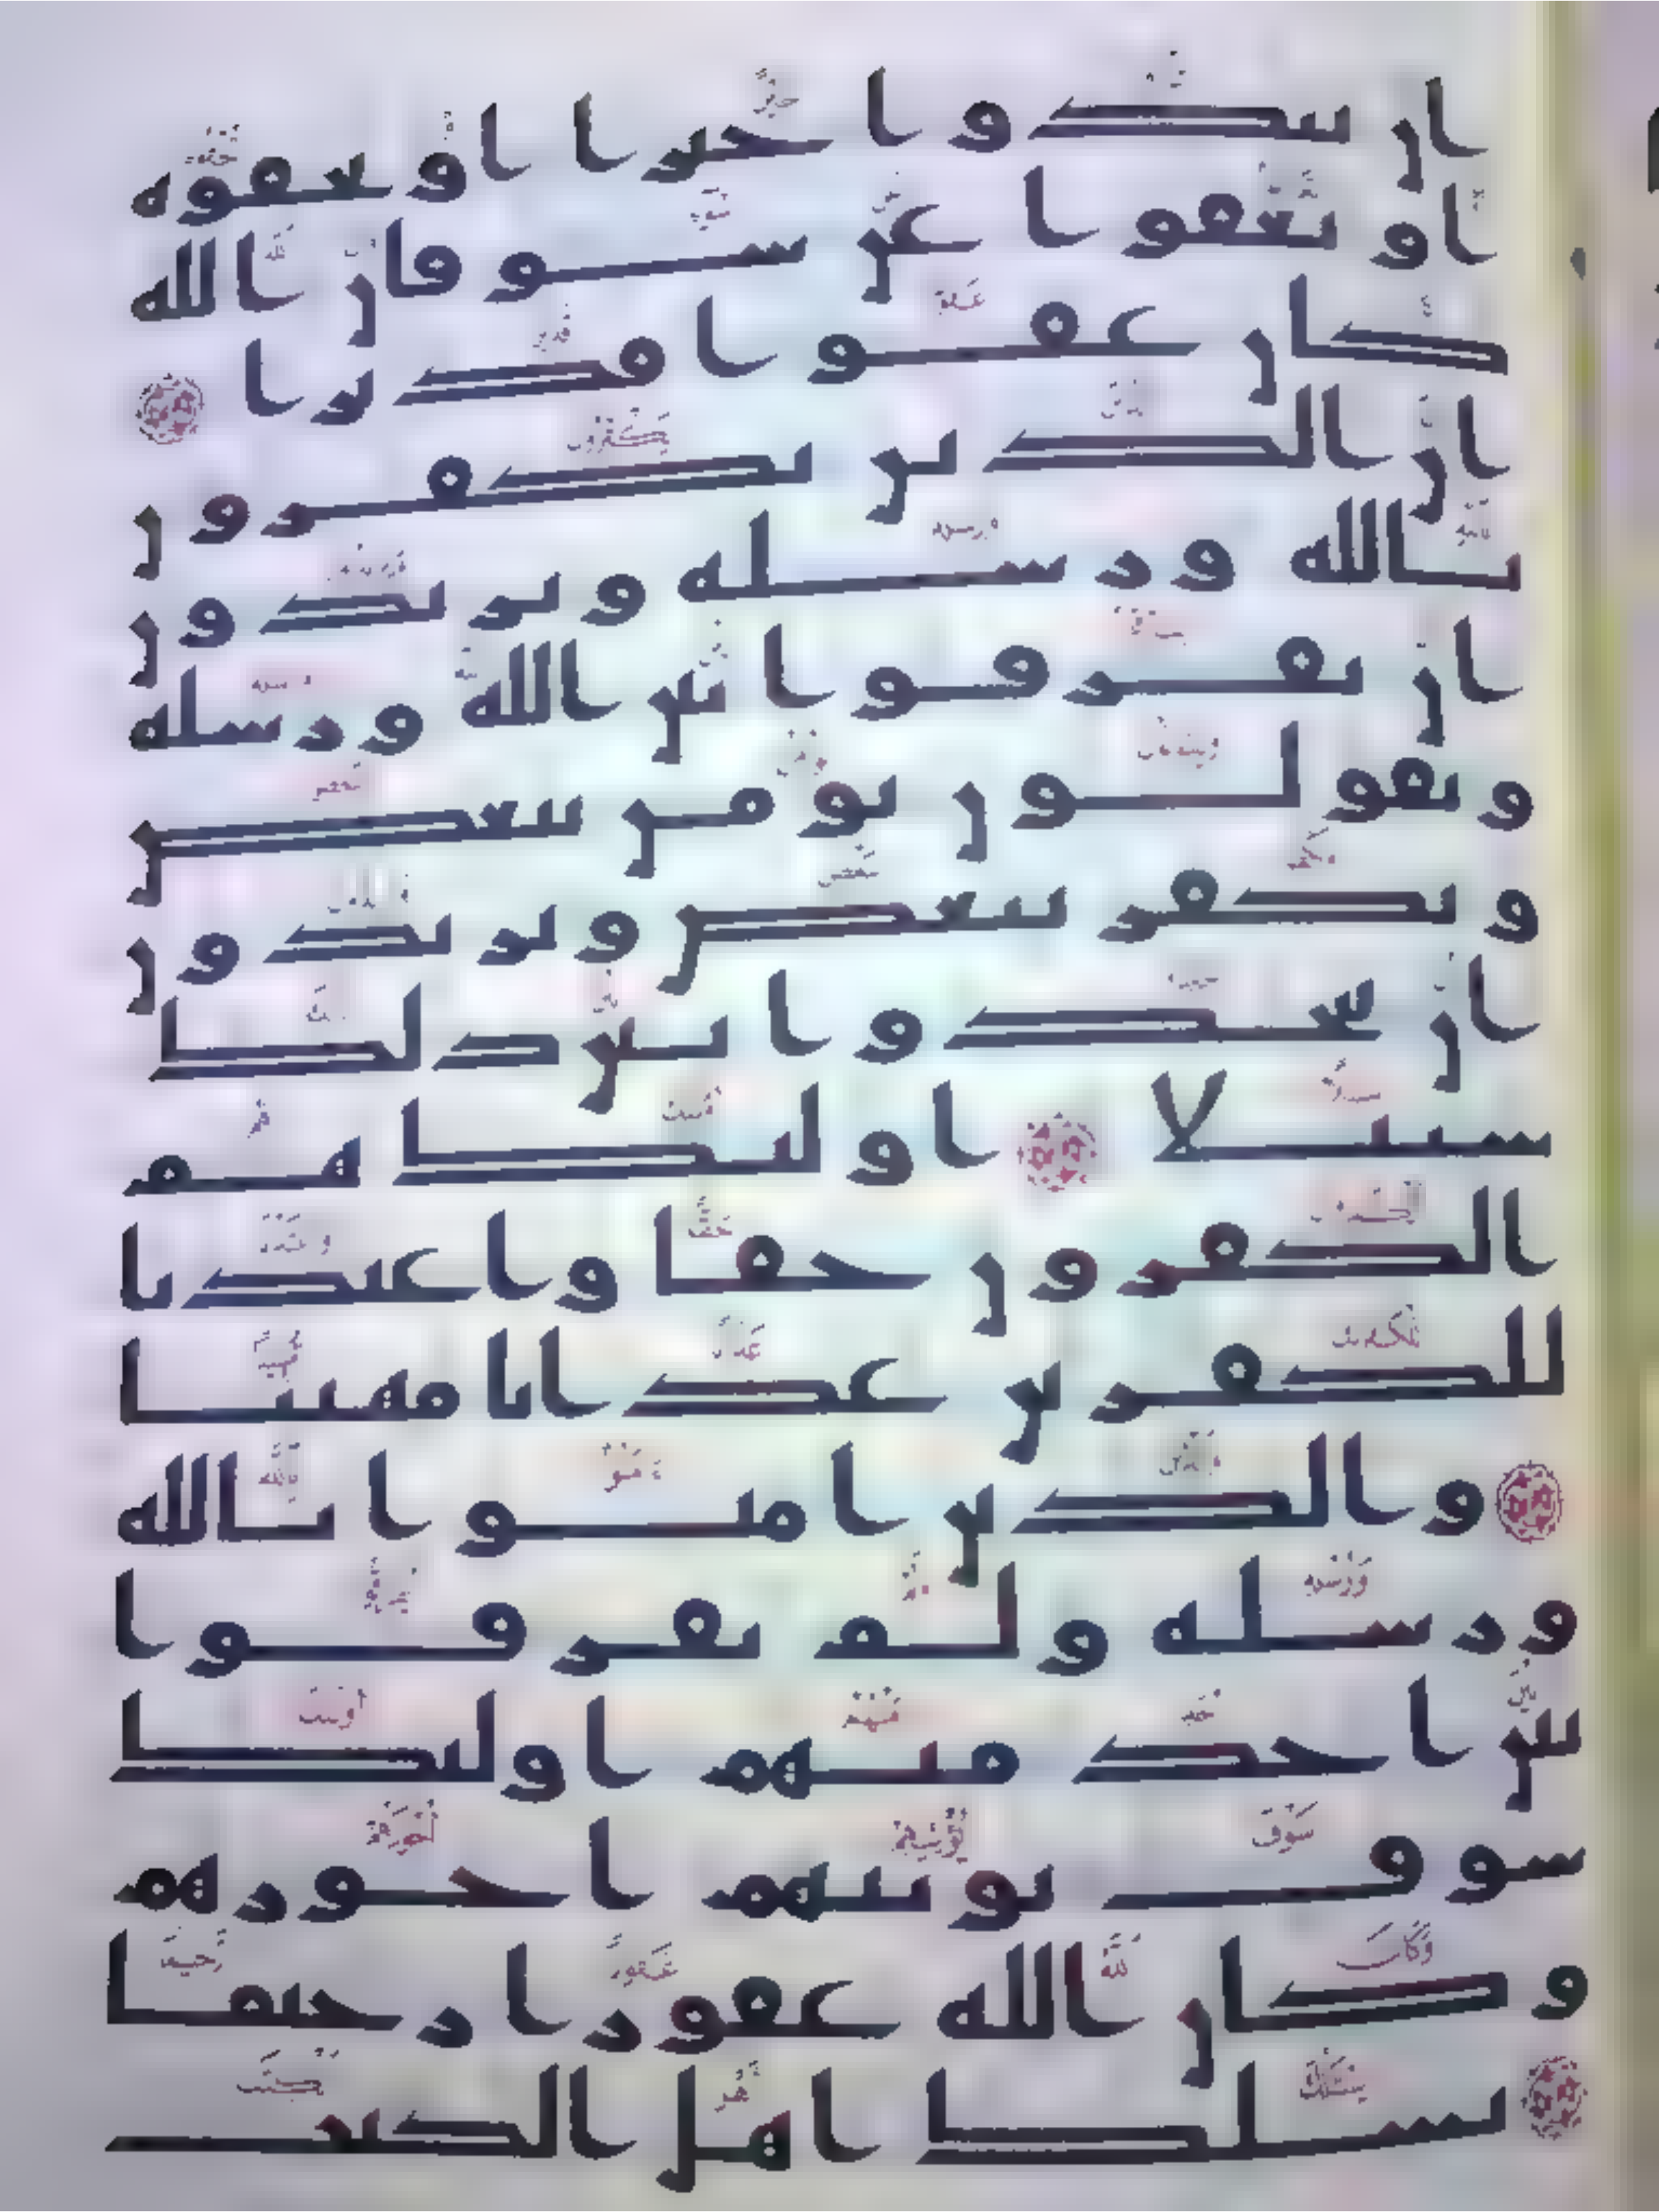 ان تبدوا خيرا او تخفوه
او تعفوا عن سو فان الله
كان عفوا قديرا
ان الذين يكفرون
بالله ورسله ويريدون
ان يفرقوا بين الله ورسله
ويقولون نومن ببعض
ونكفر ببعض ويريدون
ان يتخذوا بين ذلك
سبيلا اولئك هم
الكفرون حقا واعتدنا
للكفرين عذابا مهينا
والذين امنوا بالله
ورسله ولم يفرقوا
بين احد منهم اولئك
سوف يوتيهم اجورهم
وكان الله غفورا رحيما
يسلك اهل الكتب